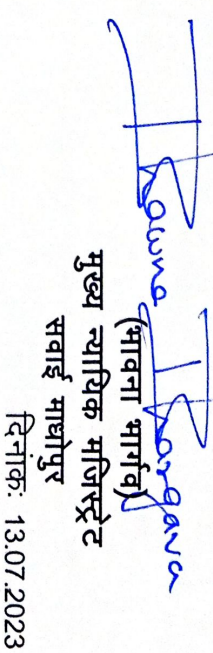 Bhawna Bhargava
(भावना भार्गव)
मुख्य न्यायिक मजिस्ट्रेट
सवाई माधोपुर
दिनांक: 13.07.2023